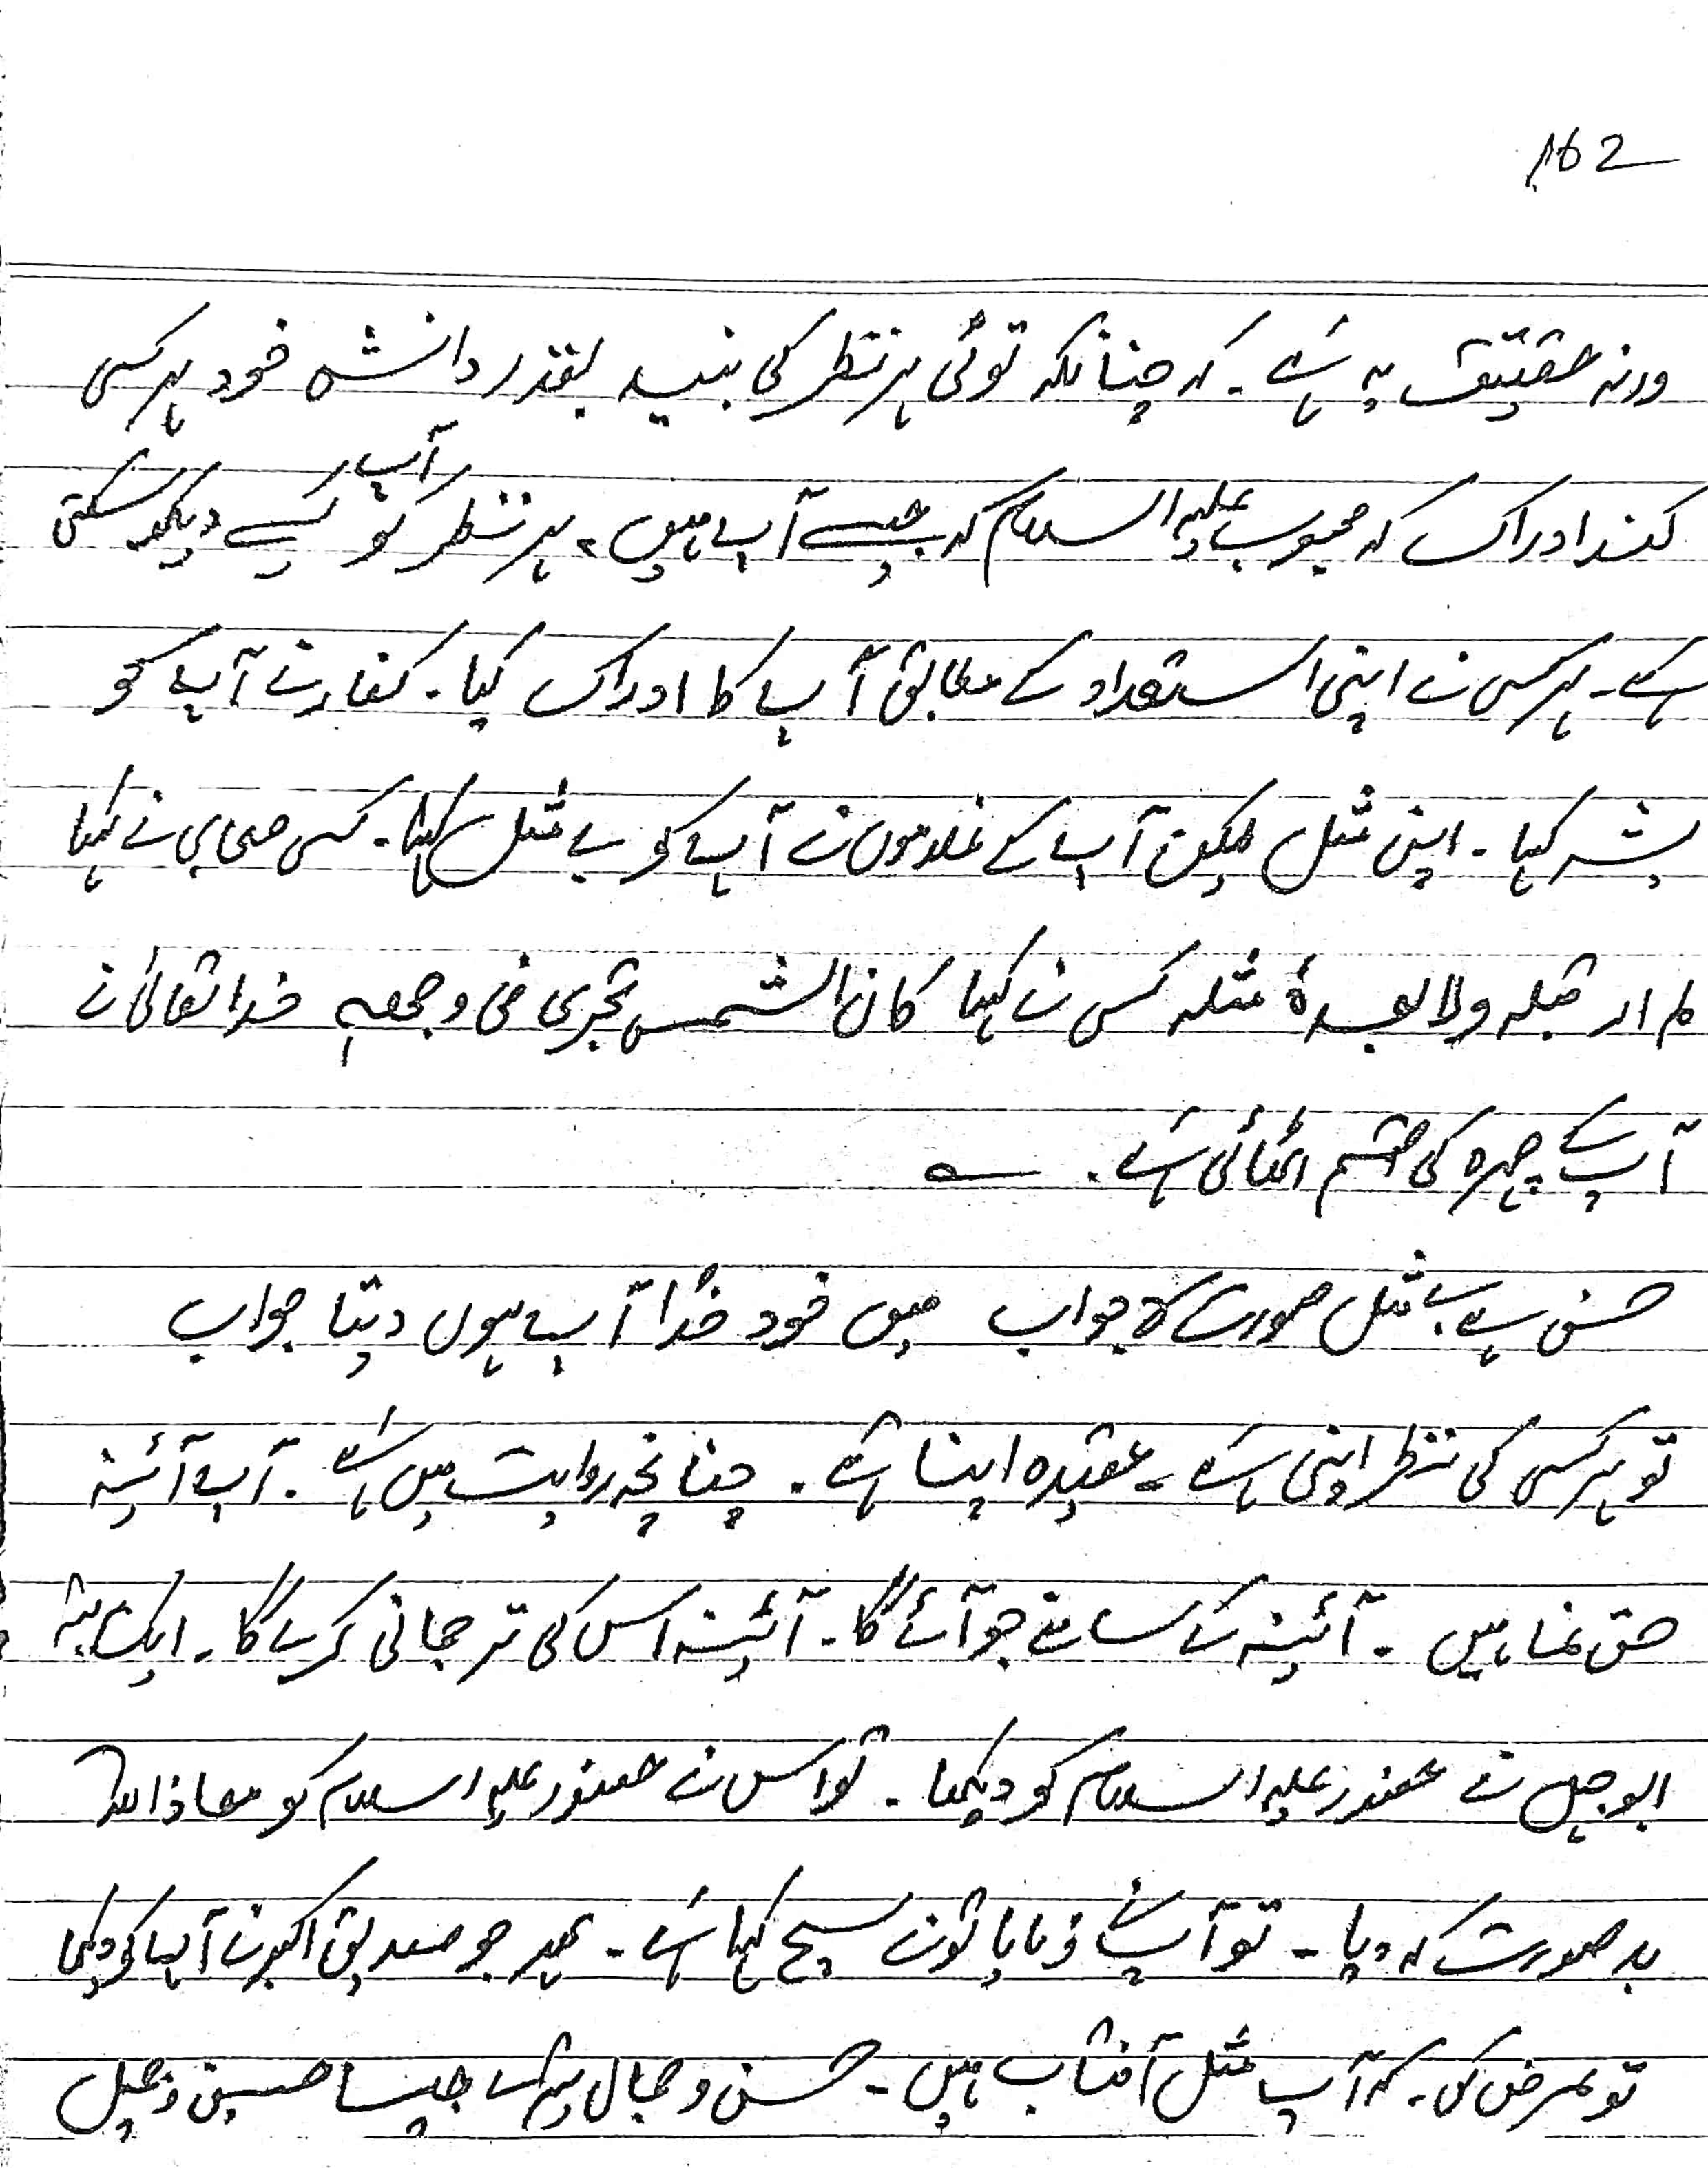 162
ورنہ حقیقت یہ ہے۔ کہ چنانکہ توئی ہر نظر کی بنید بقدر دانش خود ہر کسی
کند ادراک کہ محبوب علیہ السلام کہ جیسے آپ ہیں۔ ہر نظر آپ کو کیسے دیکھ سکتی
ہے۔ ہر کسی نے اپنی استعداد کے مطابق آپ کا ادراک کیا۔ کفار نے آپ کو
بشر کہا۔ اپنی مثل لیکن آپ کے غلاموں نے آپ کو بے مثل کہا۔ کسی صحابی نے کہا
لم ار قبلہ ولا بعدہٗ مثلہ کسی نے کہا کان الشمس تجری فی وجھہٖ خدا تعالیٰ نے
آپ کے چہرہ کی قسم اٹھائی ہے۔
حسن ہے بے مثل صورت لاجواب میں خود خدا آپ ہوں دیتا جواب
تو ہر کسی کی نظر اپنی ہے۔ عقیدہ اپنا ہے۔ چنانچہ روایت میں ہے۔ آپ آئینہ
حق نما ہیں۔ آئینہ کے سامنے جو آئے گا۔ آئینہ اس کی ترجمانی کرے گا۔ ایک مرتبہ
ابو جہل نے حضور علیہ السلام کو دیکھا۔ تو اس نے حضور علیہ السلام کو معاذ اللہ
بد صورت کہہ دیا۔ تو آپ نے فرمایا تو نے سچ کہا ہے۔ پھر جو صدیق اکبر نے آپ کو دیکھا
تو عرض کی۔ کہ آپ مثل آفتاب ہیں۔ حسن و جمال میں آپ جیسا حسین و جمیل